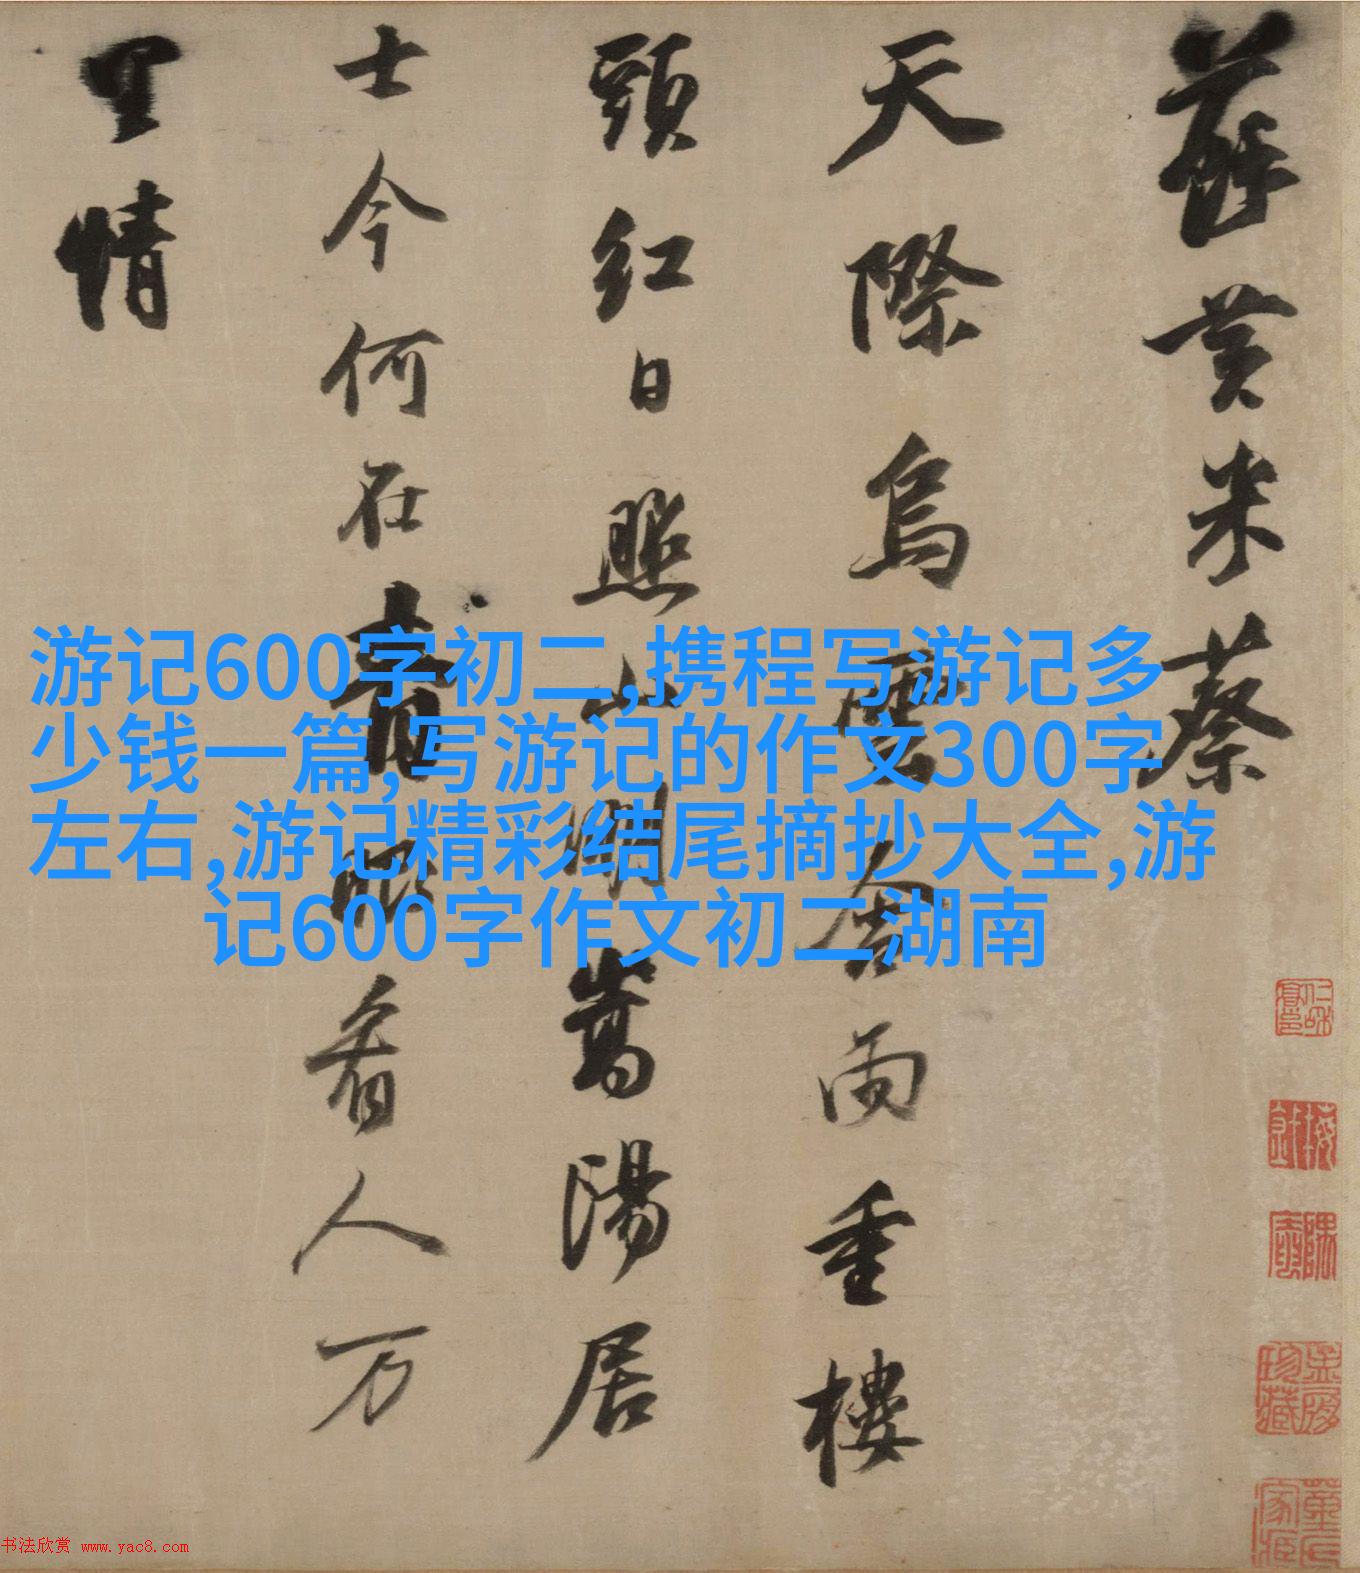 蘇黄米蔡
天際烏雲含雨重樓
頭紅日照山明嵩陽居
士今何在青眼看人万
里情
游记600字初二,携程写游记多
少钱一篇,写游记的作文300字
左右,游记精彩结尾摘抄大全,游
记600字作文初二湖南
书法欣赏 www.yac8.com